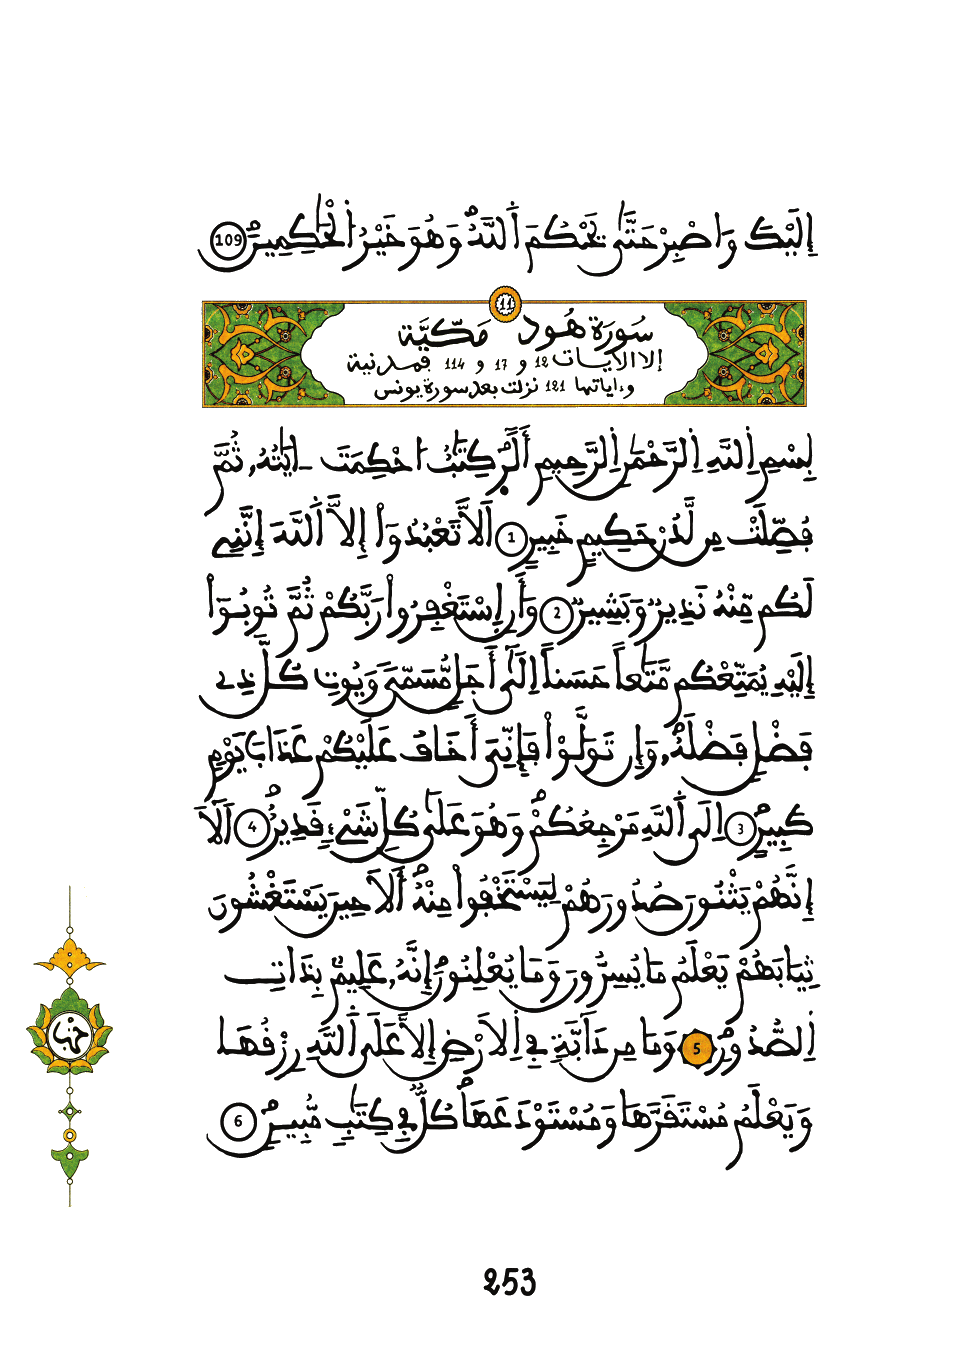 إِلَيْكَ وَاصْبِرْ حَتَّىٰ يَحْكُمَ اَ۬للَّهُ وَهُوَ خَيْرُ اُ۬لْحَٰكِمِينَ 109
11
سُورَة هُود مَكِّيَّة
إلا الآيات 12 و 17 و 114 فمدنية
وءاياتها 121 نزلت بعد سورة يونس
بِسْمِ اِ۬للَّهِ اِ۬لرَّحْمَٰنِ اِ۬لرَّحِيمِ أَلَٓر۪ كِتَٰبٌ ا۟حْكِمَتَ اٰيَٰتُهُۥ ثُمَّ
فُصِّلَتْ مِن لَّدُنْ حَكِيمٍ خَبِيرٍ 1 أَلَّا تَعْبُدُوٓاْ إِلَّا اَ۬للَّهَ إِنَّنِے
لَكُم مِّنْهُ نَذِيرٌ وَبَشِيرٌ 2 وَأَنِ اِ۪سْتَغْفِرُواْ رَبَّكُمْ ثُمَّ تُوبُوٓاْ
إِلَيْهِ يُمَتِّعْكُم مَّتَٰعاً حَسَناً اِلَىٰٓ أَجَلٖ مُّسَمّٗى وَيُوتِ كُلَّ ذِے
فَضْلٖ فَضْلَهُۥ وَإِن تَوَلَّوْاْ فَإِنِّيَ أَخَافُ عَلَيْكُمْ عَذَابَ يَوْمٖ
كَبِيرٍ 3 اِلَى اَ۬للَّهِ مَرْجِعُكُمْ وَهُوَ عَلَىٰ كُلِّ شَےْءٖ قَدِيرٌ 4 اَلَآ
إِنَّهُمْ يَثْنُونَ صُدُورَهُمْ لِيَسْتَخْفُواْ مِنْهُ أَلَا حِينَ يَسْتَغْشُونَ
ثِيَابَهُمْ يَعْلَمُ مَا يُسِرُّونَ وَمَا يُعْلِنُونَ إِنَّهُۥ عَلِيمُۢ بِذَاتِ
اِ۬لصُّدُورِ 5 وَمَا مِن دَآبَّةٖ فِے اِ۬لَارْضِ إِلَّا عَلَى اَ۬للَّهِ رِزْقُهَا
وَيَعْلَمُ مُسْتَقَرَّهَا وَمُسْتَوْدَعَهَا كُلّٞ فِے كِتَٰبٖ مُّبِينٖ 6
حزب
253